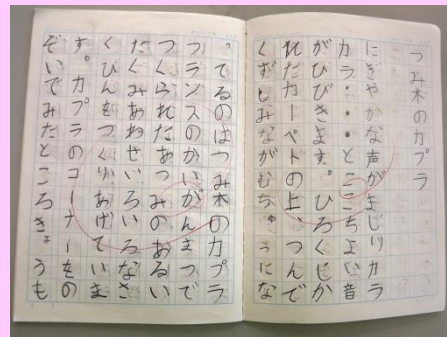 つみ木のカプラ
にぎやかな声がまじりカラ
カラ・・・とここちよい音
がひびきます。ひろくしか
れたカーペットの上、つんで
くずしみながむちゅうにな
ってるのはつみ木のカプラ
フランスのかいがんまつで
つくられたあつみのあるい
たくみあわせいろいろなさ
くひんをつくりあげていま
す。カプラのコーナーをの
ぞいでみたところきょうも